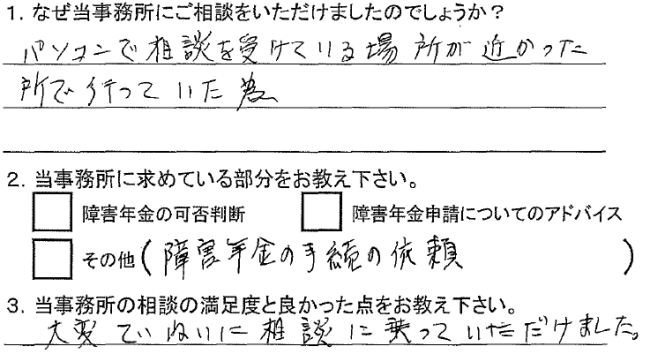 1. なぜ当事務所にご相談をいただけましたのでしょうか？
パソコンで相談を受けている場所が近かった
所で行っていた為
2. 当事務所に求めている部分をお教え下さい。
障害年金の可否判断 障害年金申請についてのアドバイス
その他(障害年金の手続の依頼)
3. 当事務所の相談の満足度と良かった点をお教え下さい。
大変ていねいに相談に乗っていただけました。